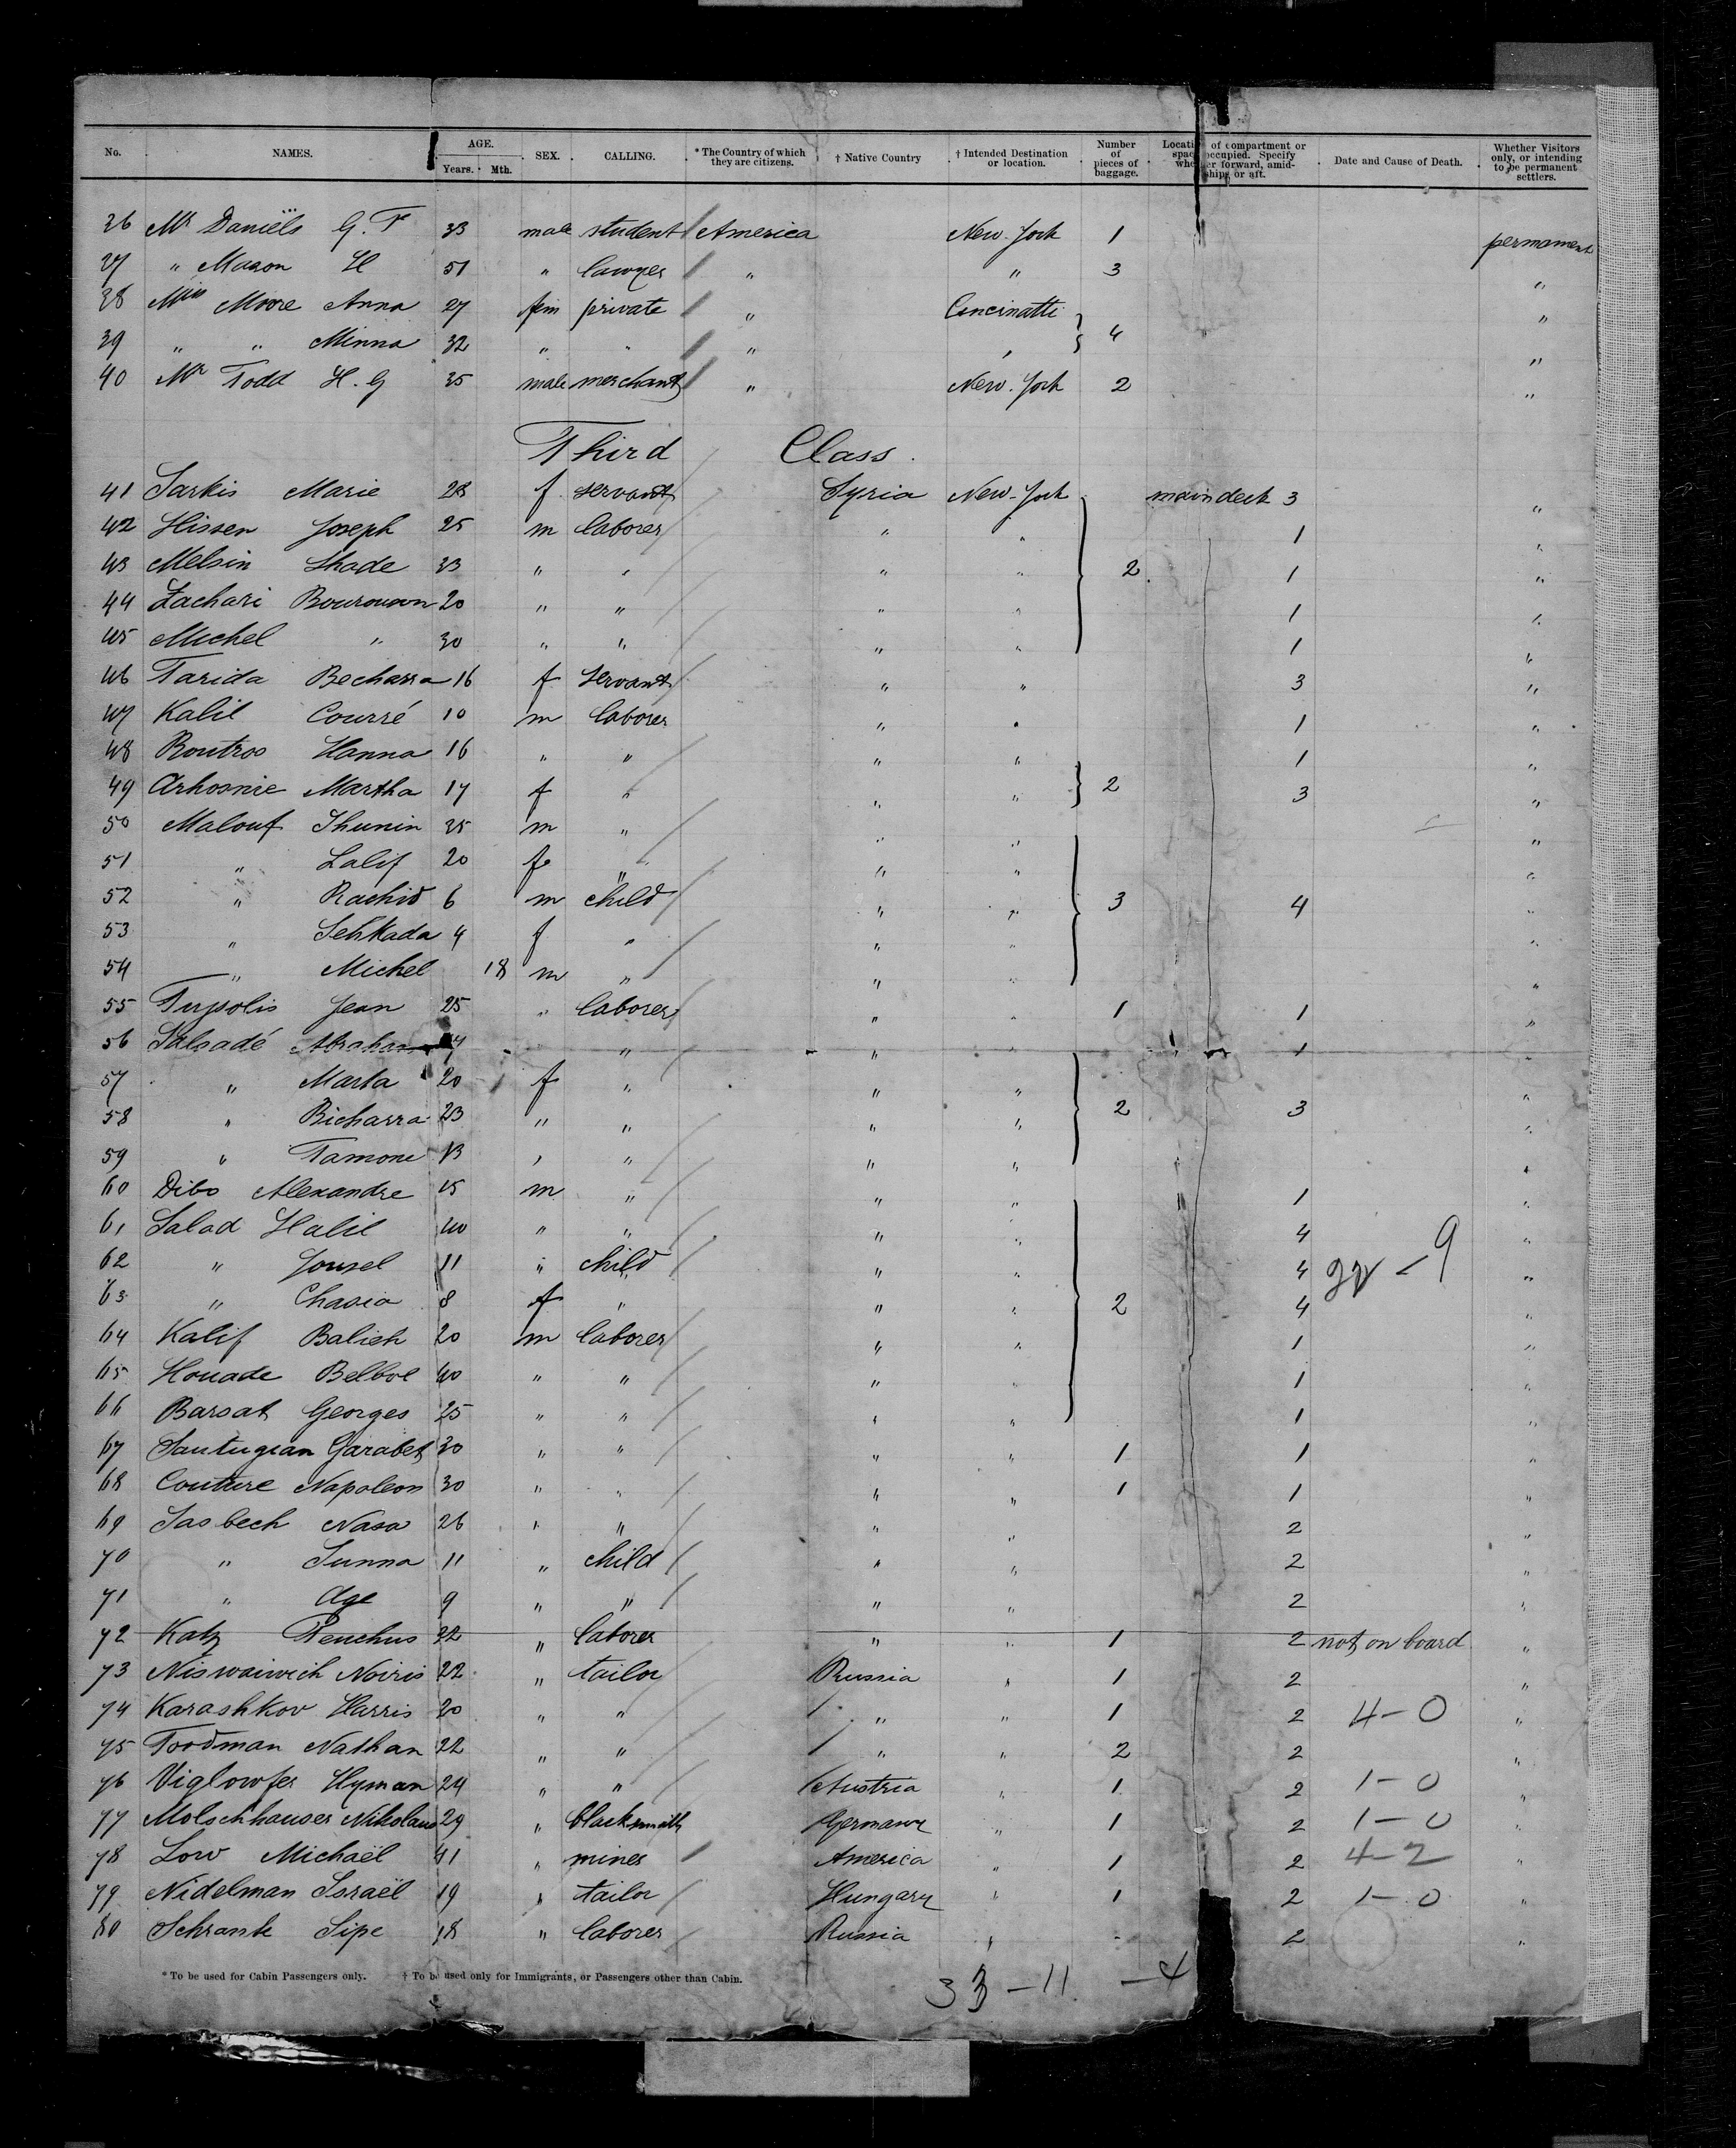 No. NAMES. AGE. Years. Mth. SEX. CALLING. * The Country of which they are citizens. † Native Country † Intended Destination or location. Number of pieces of baggage. Location of compartment or space occupied. Specify whether forward, amidships or aft. Date and Cause of Death. Whether Visitors only, or intending to be permanent settlers.
36 Mr Daniëls G. F 33 male student America New-York 1 permanent
37 " Mason H 51 " lawyer " " 3 "
38 Miss Moore Anna 27 fem private " Cincinatti "
39 " " Minna 32 " " " " 4 "
40 Mr Todd H. G 35 male merchant " New-York 2 "
Third Class.
41 Sarkis Marie 28 f servant Syria New-York maindeck 3 "
42 Hissen Joseph 25 m laborer " " 1 "
43 Melsin Shade 33 " " " " 2 1 "
44 Zachari Bourouson 20 " " " " 1 "
45 Michel " 30 " " " " 1 "
46 Farida Becharra 16 f servant " " 3 "
47 Kalil Courré 10 m laborer " " 1 "
48 Boutros Hanna 16 " " " " 1 "
49 Arhosnie Martha 17 f " " " 2 3 "
50 Malouf Thunin 35 m " " " "
51 " Lalif 20 f " " " "
52 " Rachid 6 m child " " 3 4 "
53 " Sehkada 4 f " " " "
54 " Michel 18 m " " " "
55 Turpolis Jean 25 " laborer " " 1 1 "
56 Salsadé Abraham " " " 1
57 " Marta 20 f " " " "
58 " Bicharra 23 " " " " 2 3 "
59 " Tamone 13 " " " " "
60 Dibo Alexandre 15 m " " " 1 "
61 Salad Halil 40 " " " " 4 "
62 " Jousel 11 " child " " 4 "
63 " Chasia 8 f " " " 2 4 "
64 Kalif Balieh 20 m laborer " " 1 "
65 Houade Belbol 40 " " " " 1 "
66 Barsat Georges 25 " " " " 1 "
67 Santugian Garabet 30 " " " " 1 1
68 Couture Napoleon 30 " " " " 1 1 "
69 Sasbech Nasa 26 " " " " 2 "
70 " Sunna 11 " child " " 2 "
71 " Age 9 " " " " 2 "
72 Katz Penchus 22 " laborer " " 1 2 not on board "
73 Niswaiwich Noiris 22 " tailor Russia " 1 2 "
74 Karashkov Harris 20 " " " " 1 2 4-0 "
75 Toodman Nathan 22 " " " " 2 2 "
76 Viglowfer Hyman 24 " " Austria " 1 2 1-0 "
77 Molschhauser Nikolaus 29 " blacksmith Germany " 1 2 1-0 "
78 Low Michaël 41 " miner America " 1 2 4-2 "
79 Nidelman Israël 19 " tailor Hungary " 1 2 1-0 "
80 Schrank Sipe 18 " laborer Russia " 2 "
* To be used for Cabin Passengers only. † To be used only for Immigrants, or Passengers other than Cabin.
33-11 -4